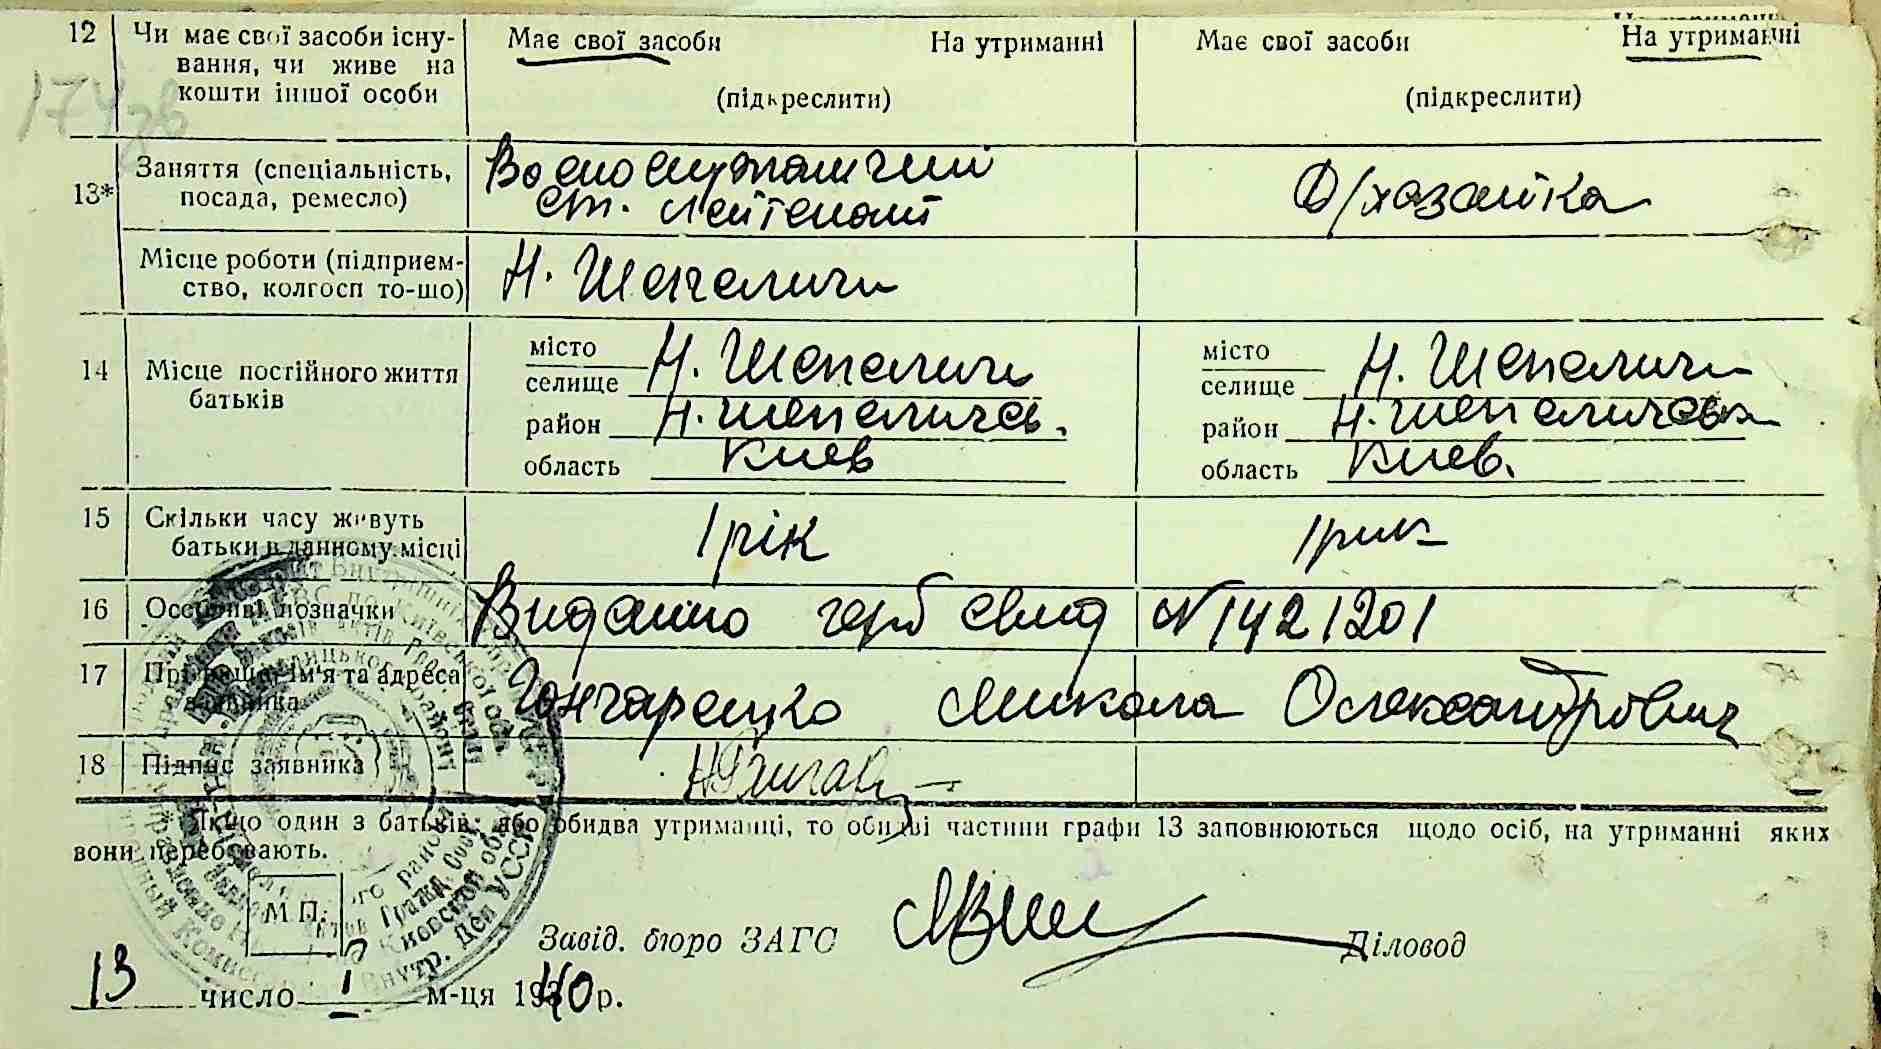 12 Чи має свої засоби існу-
вання, чи живе на
кошти іншої особи
Має свої засоби На утриманні
(підкреслити)
Має свої засоби На утриманні
(підкреслити)
174зв
13* Заняття (спеціальність,
посада, ремесло)
Военослужащий
ст. лейтенант
Д/хазяйка
Місце роботи (підприєм-
ство, колгосп то-що)
Н. Шепеличи
14 Місце постійного життя
батьків
місто
селище Н. Шепеличи
район Н. Шепеличев.
область Киев
місто
селище Н. Шепеличи
район Н. Шепеличев
область Киев.
15 Скільки часу живуть
батьки в данному місці
1 рік
1 рик
16 Особливі позначки
Виданно герб свид N 1421201
17 Прізвище, ім'я та адреса
заявника
Гончаренко Микола Олександрович
18 Підпис заявника
Якщо один з батьків, або обидва утриманці, то обидві частини графи 13 заповнюються щодо осіб, на утриманні яких
вони перебувають.
М П.
Завід. бюро ЗАГС
Діловод
13 число 1 м-ця 1940 р.